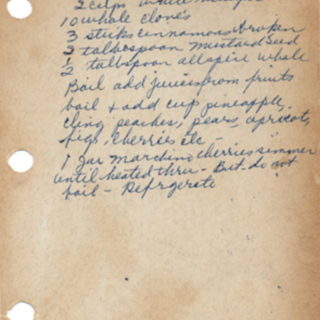 2 cups white vinegar
10 whole cloves
3 sticks cinnamon broken
3 talbespoon mustard seed
1/2 talbspoon allspice whole
Boil add juices from fruits
boil & add cup pineapple,
cling peaches, pears, apricots,
figs, cherries etc -
1 jar marchino cherries simmer
until heated thru - But do not
boil - Refrgerate